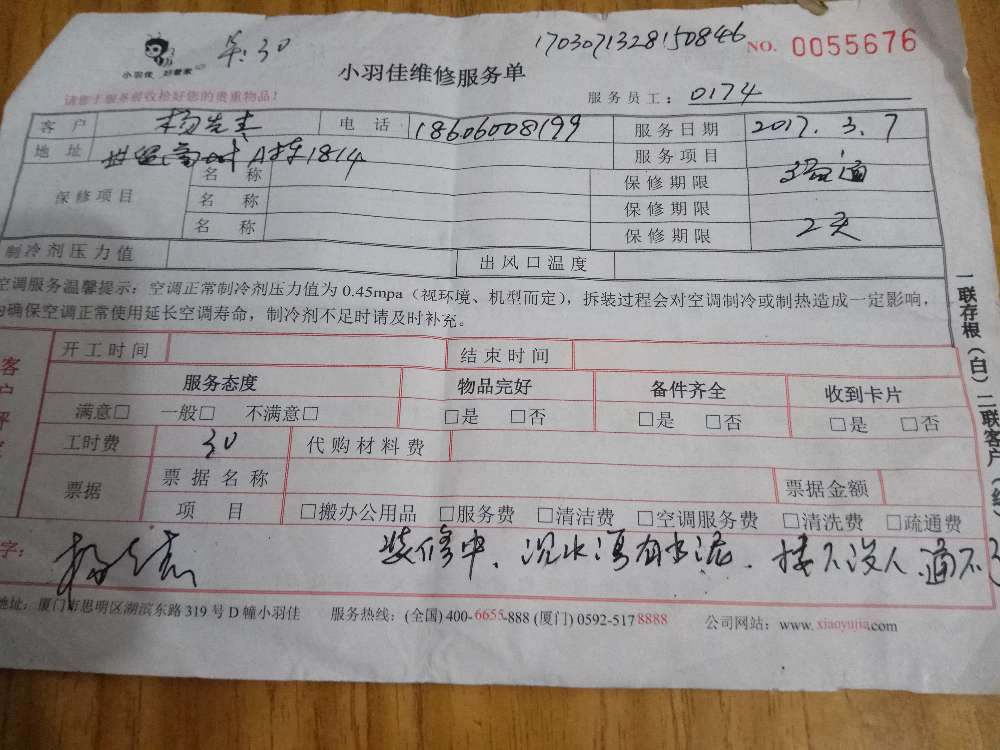 小羽佳 好管家
单:30
1703071328150846
NO. 0055676
小羽佳维修服务单
服务员工: 0174
请您于服务前收捡好您的贵重物品!
客户 杨先生 电话 18606008199 服务日期 2017.3.7
地址 A楼1814 服务项目 疏通
保修项目 名称 保修期限
名称 保修期限
名称 保修期限 2天
制冷剂压力值 出风口温度
空调服务温馨提示:空调正常制冷剂压力值为0.45mpa(视环境、机型而定),拆装过程会对空调制冷或制热造成一定影响,
为确保空调正常使用延长空调寿命,制冷剂不足时请及时补充。
开工时间 结束时间
客户评 服务态度 物品完好 备件齐全 收到卡片
满意□ 一般□ 不满意□ □是 □否 □是 □否 □是 □否
工时费 30 代购材料费
票据 票据名称 票据金额
项目 □搬办公用品 □服务费 □清洁费 □空调服务费 □清洗费 □疏通费
字: 装修中、沉水湾有水泥、 通不
地址:厦门市思明区湖滨东路319号D幢小羽佳 服务热线:(全国)400-6655-888 (厦门)0592-5178888 公司网站:www.xiaoyujia.com
一联存根(白)二联客户(红)